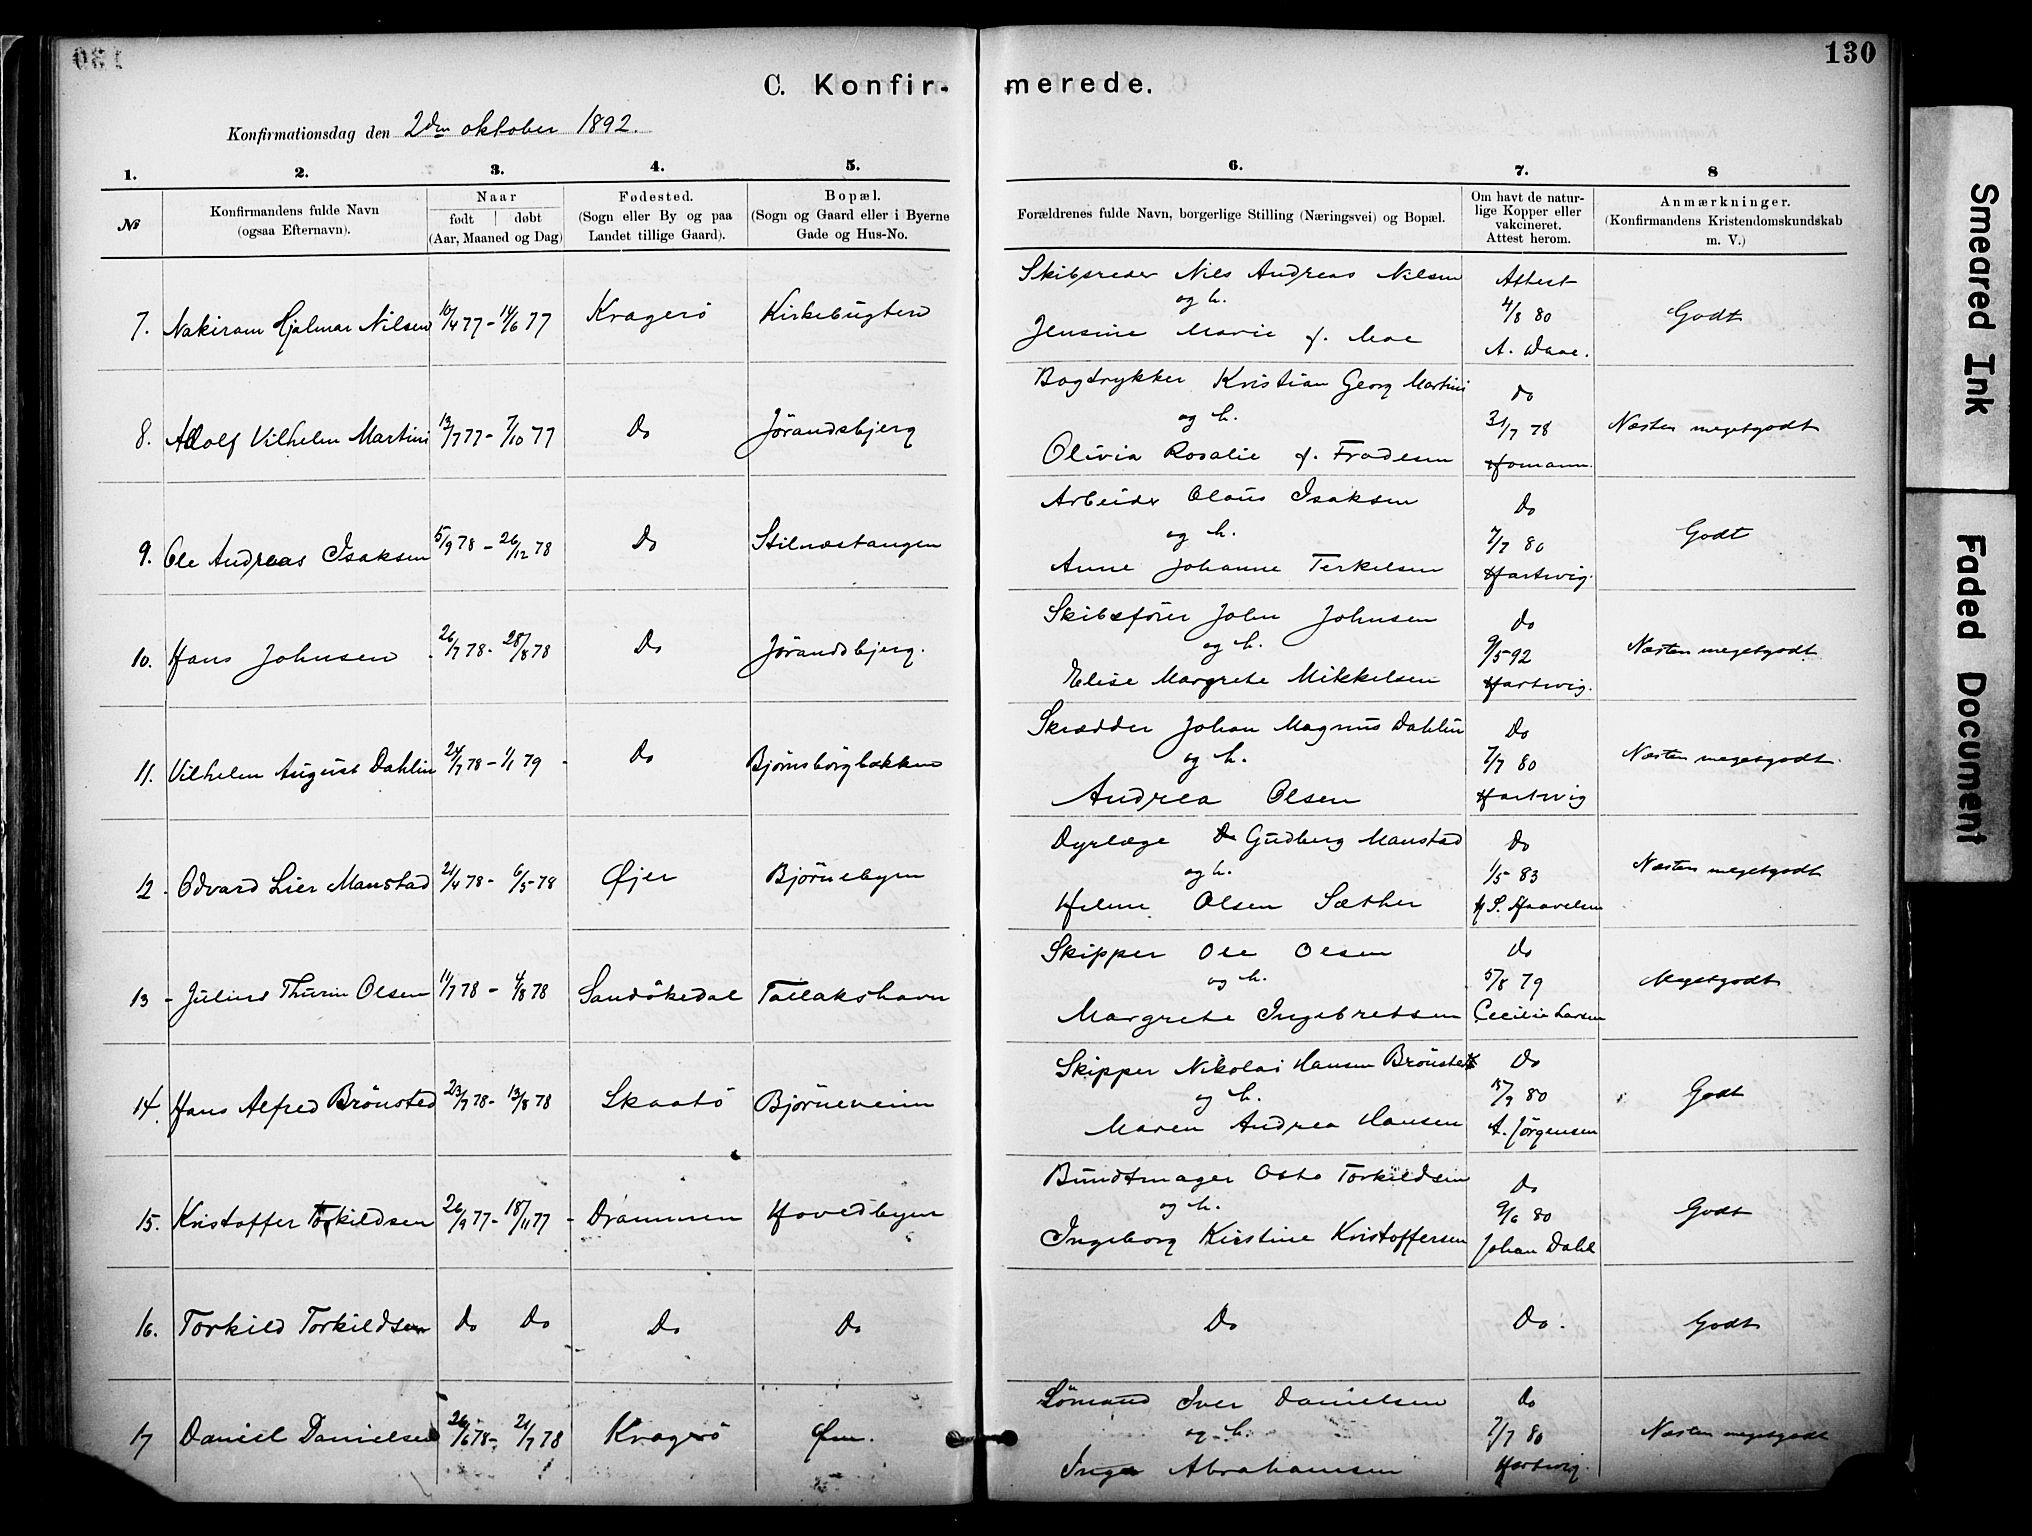 130
C. Konfir- merede.
Konfirmationsdag den 2den oktober 1892.
1. 2. 3. 4. 5. 6. 7. 8
№
Konfirmandens fulde Navn
(ogsaa Efternavn).
Naar
født | døbt
(Aar, Maaned og Dag)
Fødested.
(Sogn eller By og paa
Landet tillige Gaard).
Bopæl.
(Sogn og Gaard eller i Byerne
Gade og Hus-No.
Forældrenes fulde Navn, borgerlige Stilling (Næringsvei) og Bopæl.
Om havt de natur-
lige Kopper eller
vakcineret.
Attest herom.
Anmærkninger.
(Konfirmandens Kristendomskundskab
m. V.)
7. Nakiram Hjalmar Nilsen 10/4 77 - 14/6 77 Kragerö Kirkebugten
Skibsreder Nils Andreas Nilsen
og h.
Jensine Marie f. Moe
Attest
4/8 80
A. Waae.
Godt
8. Adolf Vilhelm Martini 13/7 77 - 7/10 77 Do Jørandsbjerg
Bogtrykker Kristian Georg Martini
og h.
Olivia Rosalie f. Fradesen
do
31/7 78
Homann.
Næsten megetgodt
9. Ole Andreas Isaksen 5/9 78 - 26/12 78 Do Stilnæstangen
Arbeider Olaus Isaksen
og h.
Anne Johanne Terkelsen
Do
7/7 80
Hartwig.
Godt
10. Hans Johnsen 26/7 78 - 28/8 78 Do Jørandsbjerg.
Skibsfører John Johnsen
og h.
Elise Margrete Mikkelsen
do
9/5 92
Hartwig.
Næsten megetgodt
11. Vilhelm August Dahlin 24/7 78 - 1/1 79 - Do Bjørnsborgbakken
Skrædder Johan Magnus Dahlin
og h.
Andrea Olsen
Do
7/7 80
Hartwig
Næsten megetgodt.
12. Odvard Lier Manstad 21/4 78 - 6/5 78 Øjer Bjørnebyen
Dyrlæge Gudberg Manstad
og h.
Helene Olsen Sæther
Do
1/5 83
H S. Haavelsen
Næsten megetgodt
13 - Julius Thurin Olsen 11/7 78 - 4/8 78 Sandökedal Tallakshavn
Skipper Ole Olsen
og h.
Margrete Ingebretsen
do
5/8 79
Cecilie Larsen
Megetgodt
14. Hans Alfred Brönsted 23/7 78 - 13/8 78 Skaatö Bjørneveien
Skipper Nikolai Hansen Brönsted
og h.
Maren Andrea Hansen
Do
15/9 80
A. Jørgensen
Godt
15. Kristoffer Torkildsen 26/9 77 - 18/11 77 - Drammen Hovedbyen
Bundtmager Otto Torkildsen
og h.
Ingeborg Kirstine Kristoffersen
Do
9/6 80
Johan Dahl
Godt
16. Torkild Torkildsen Do Do Do Do Do Do. Godt
17 Daniel Danielsen 26/6 78 - 21/7 78 Kragerö Øen.
Sömand Iver Danielsen
og h.
Inga Abrahamsen
do
7/7 80
Hartwig.
Næsten megetgodt
Smeared Ink
Faded Document